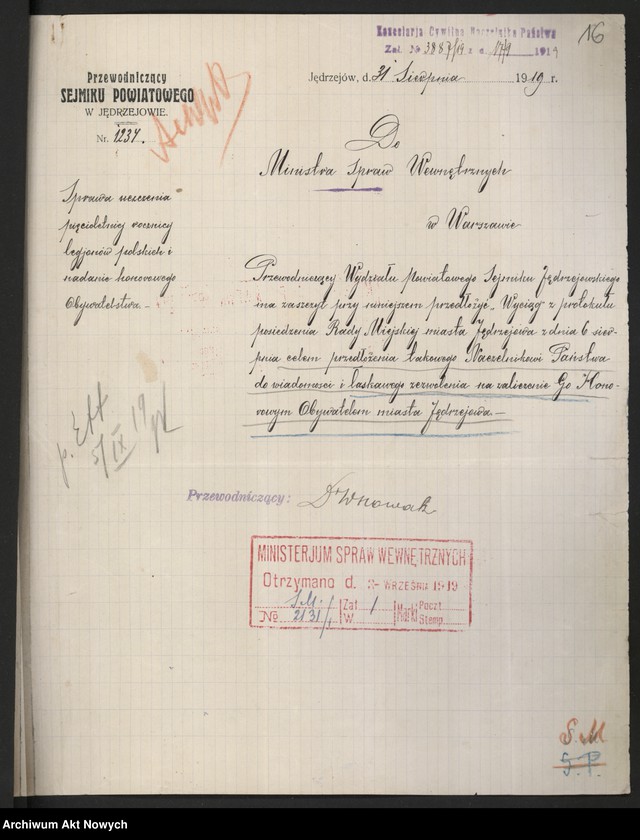 16
Kancelarja Cywilna Naczelnika Państwa
Zał. № 3887/19 z d. 17/9 1919
Przewodniczący
SEJMIKU POWIATOWEGO
W JĘDRZEJOWIE.
Nr. 1234.
Jędrzejów, d. 31 Sierpnia 1919 r.
Do
Ministra Spraw Wewnętrznych
w Warszawie
Sprawa uczczenia
pięcioletniej rocznicy
legjonów polskich i
nadanie honorowego
Obywatelstwa.—
Przewodniczący Wydziału Powiatowego Sejmiku Jędrzejowskiego
ma zaszczyt przy niniejszem przedłożyć „Wyciąg" z protokułu
posiedzenia Rady Miejskiej miasta Jędrzejowa z dnia 6 sier-
pnia celem przedłożenia takowego Naczelnikowi Państwa
do wiadomości i łaskawego zezwolenia na zaliczenie Go Hono-
rowym Obywatelem miasta Jędrzejowa.—
5/IX 19
Przewodniczący:
MINISTERJUM SPRAW WEWNĘTRZNYCH
Otrzymano d. WRZEŚNIA 1919
S.M.
№ 2131/1 Zał W 1 Poczt Stemp.
S.M
S.P.
Archiwum Akt Nowych